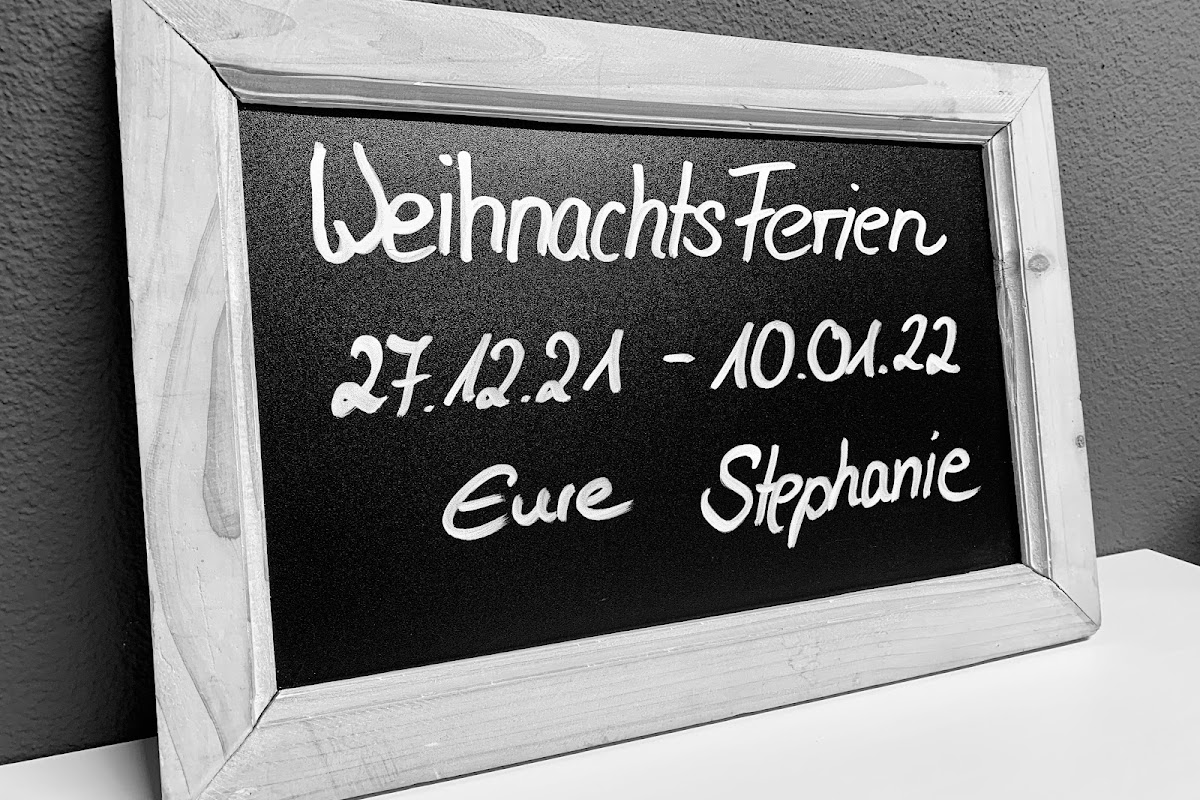 WeihnachtsFerien
27.12.21 - 10.01.22
Eure Stephanie